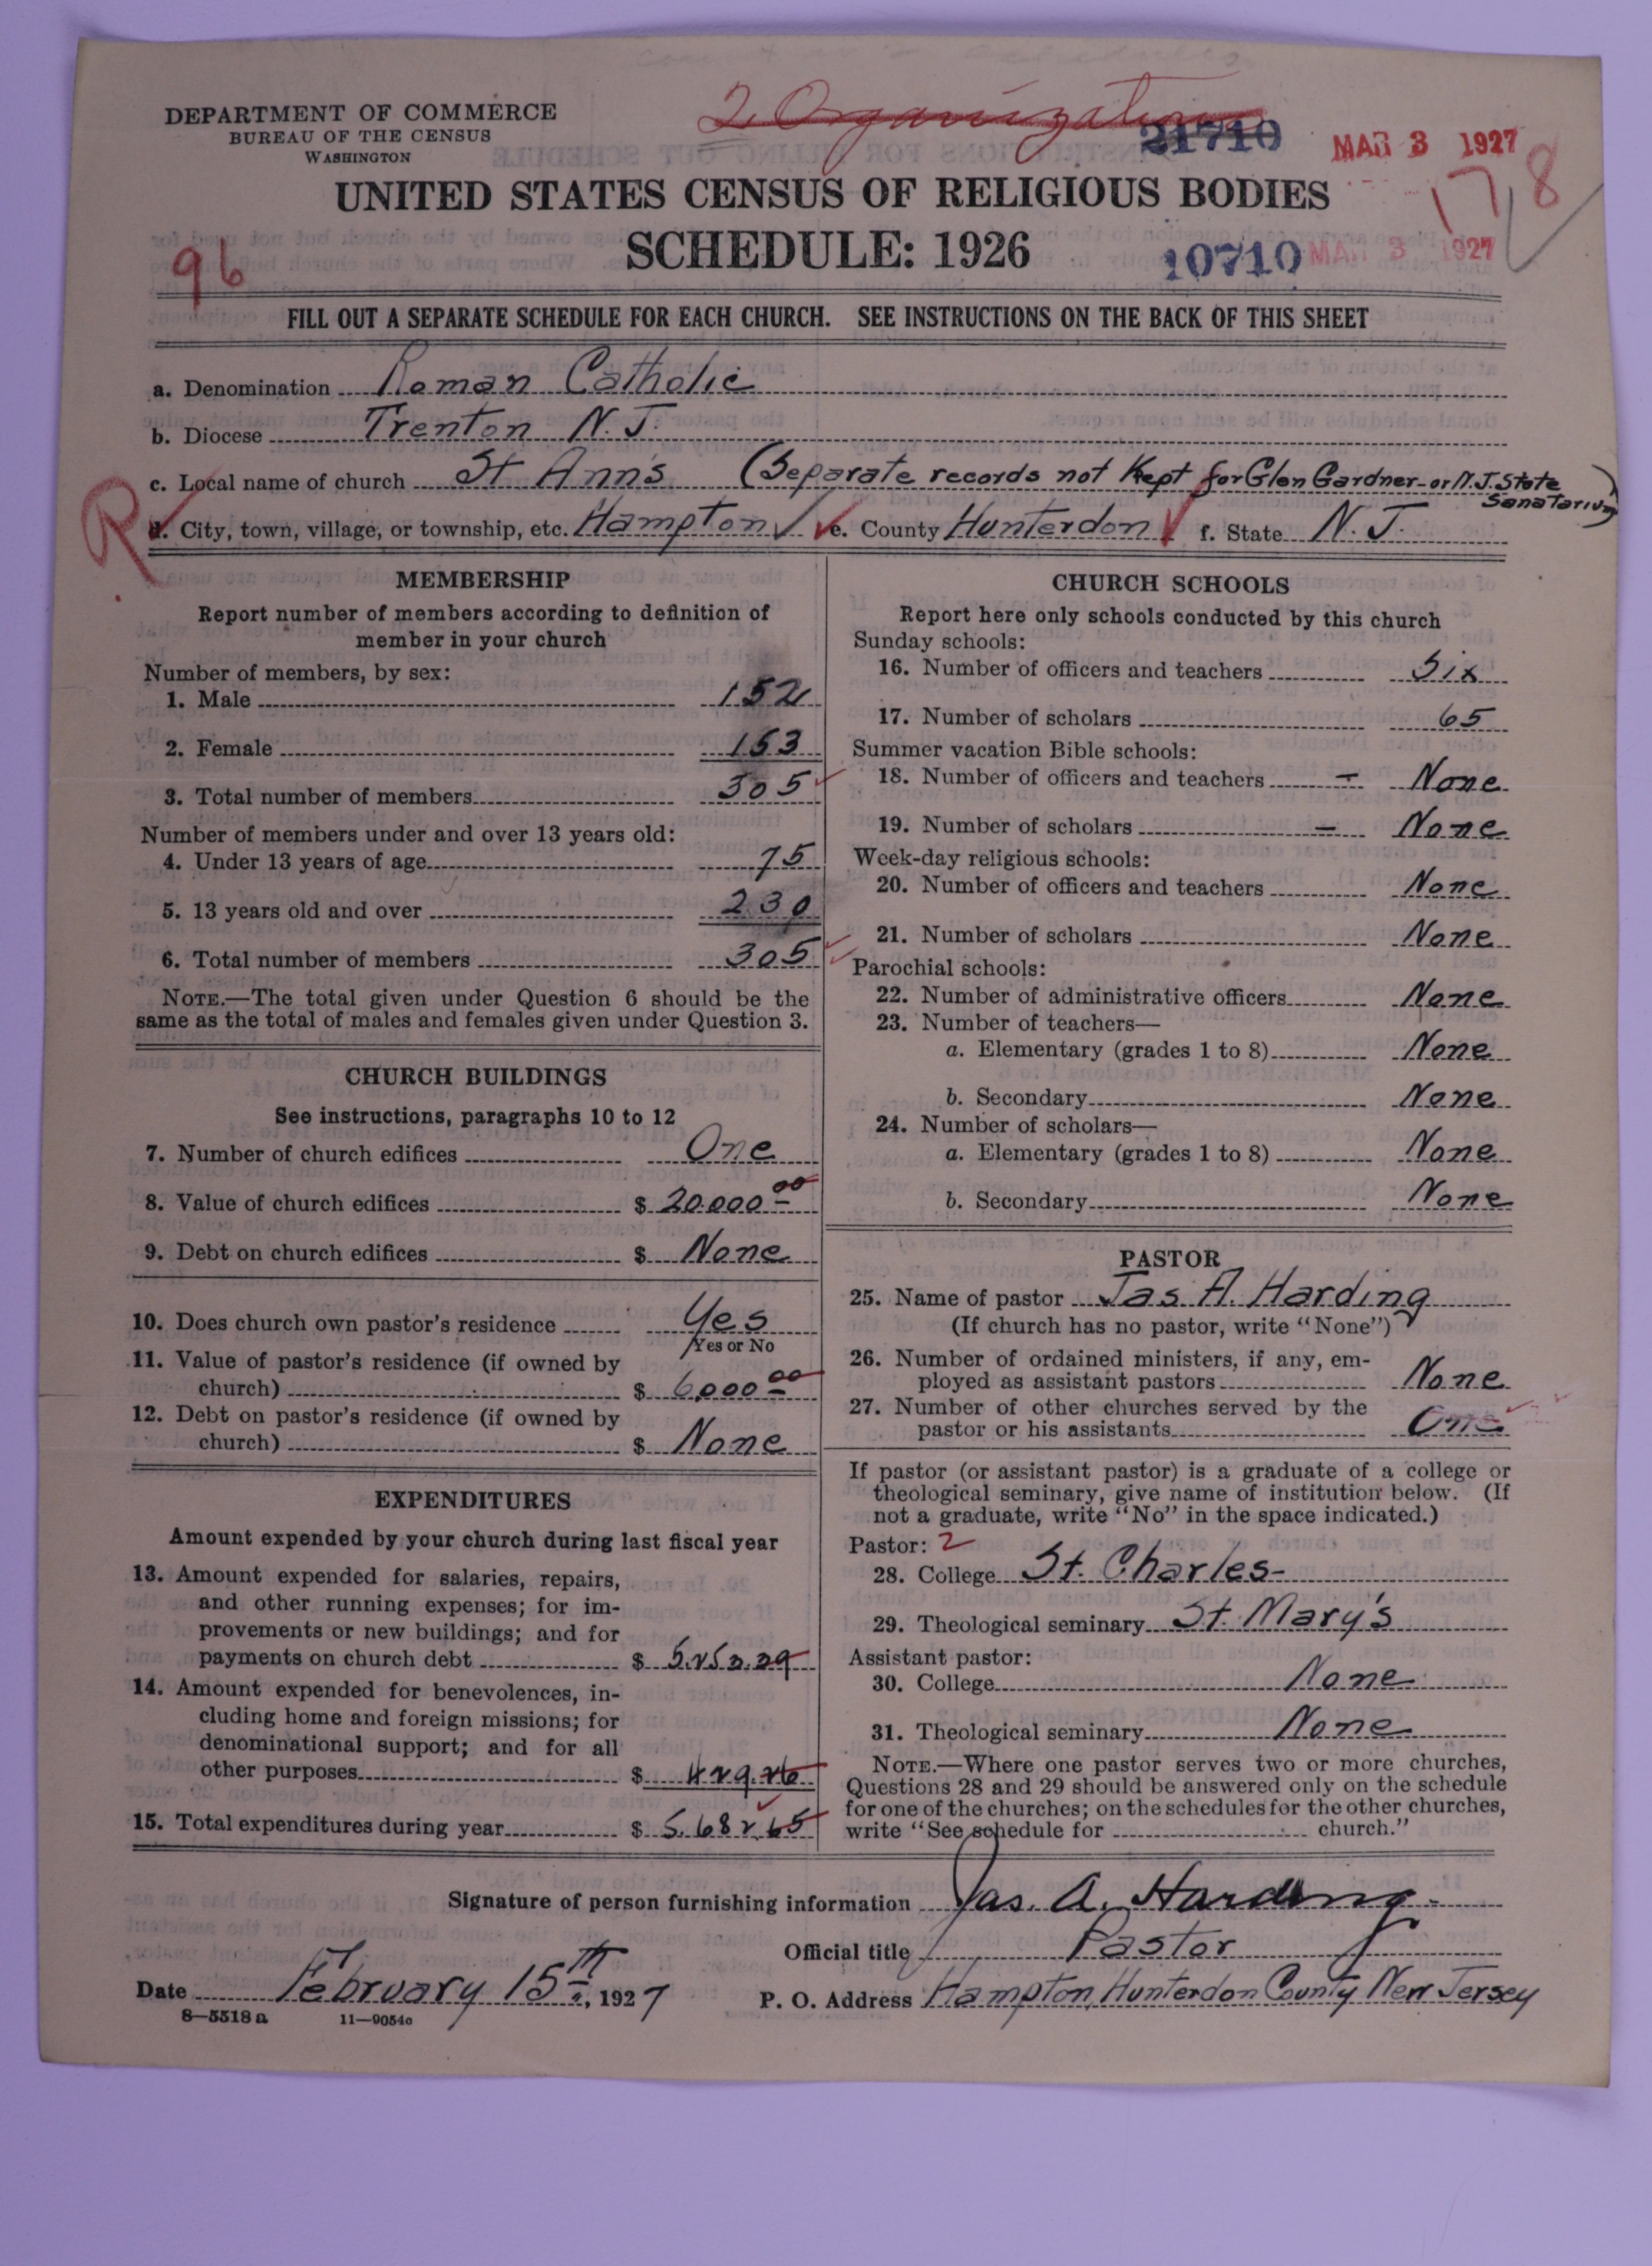 DEPARTMENT OF COMMERCE
BUREAU OF THE CENSUS
WASHINGTON
2 Organizations
21710
MAR 3 1927
1718
UNITED STATES CENSUS OF RELIGIOUS BODIES
SCHEDULE: 1926
96
10710
MAR 3 1927
FILL OUT A SEPARATE SCHEDULE FOR EACH CHURCH. SEE INSTRUCTIONS ON THE BACK OF THIS SHEET
a. Denomination Roman Catholic
b. Diocese Trenton N. J.
c. Local name of church St Ann's (Separate records not Kept for Glen Gardner - or N.J. State Sanatarium)
R
d. City, town, village, or township, etc. Hampton e. County Hunterdon f. State N. J.
MEMBERSHIP
Report number of members according to definition of
member in your church
Number of members, by sex:
1. Male 152
2. Female 153
3. Total number of members 305
Number of members under and over 13 years old:
4. Under 13 years of age 75
5. 13 years old and over 230
6. Total number of members 305
NOTE.—The total given under Question 6 should be the
same as the total of males and females given under Question 3.
CHURCH BUILDINGS
See instructions, paragraphs 10 to 12
7. Number of church edifices One
8. Value of church edifices $ 20.000 00
9. Debt on church edifices $ None
10. Does church own pastor's residence Yes
Yes or No
11. Value of pastor's residence (if owned by
church) $ 6,000 00
12. Debt on pastor's residence (if owned by
church) $ None
EXPENDITURES
Amount expended by your church during last fiscal year
13. Amount expended for salaries, repairs,
and other running expenses; for im-
provements or new buildings; and for
payments on church debt $ 5.253.39
14. Amount expended for benevolences, in-
cluding home and foreign missions; for
denominational support; and for all
other purposes $ 429.26
15. Total expenditures during year $ 5.682.65
CHURCH SCHOOLS
Report here only schools conducted by this church
Sunday schools:
16. Number of officers and teachers Six
17. Number of scholars 65
Summer vacation Bible schools:
18. Number of officers and teachers — None
19. Number of scholars — None
Week-day religious schools:
20. Number of officers and teachers None
21. Number of scholars None
Parochial schools:
22. Number of administrative officers None
23. Number of teachers—
a. Elementary (grades 1 to 8) None
b. Secondary None
24. Number of scholars—
a. Elementary (grades 1 to 8) None
b. Secondary None
PASTOR
25. Name of pastor Jas A. Harding
(If church has no pastor, write "None")
26. Number of ordained ministers, if any, em-
ployed as assistant pastors None
27. Number of other churches served by the
pastor or his assistants One
If pastor (or assistant pastor) is a graduate of a college or
theological seminary, give name of institution below. (If
not a graduate, write "No" in the space indicated.)
Pastor: 2
28. College St. Charles-
29. Theological seminary St. Mary's
Assistant pastor:
30. College None
31. Theological seminary None
NOTE.—Where one pastor serves two or more churches,
Questions 28 and 29 should be answered only on the schedule
for one of the churches; on the schedules for the other churches,
write "See schedule for church."
Signature of person furnishing information Jas. A. Harding
Official title Pastor
Date February 15th, 1927 P. O. Address Hampton, Hunterdon County New Jersey
8—5518a 11—9054c